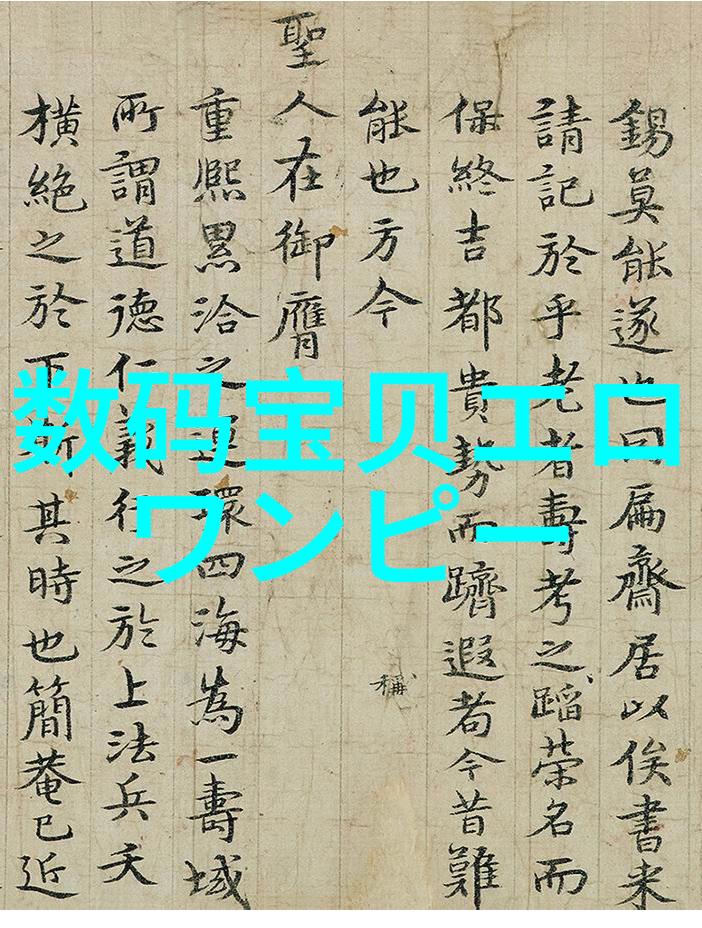 錫莫能遂也曰扁齋居以俟書来
請記於乎老者壽考之蹈榮名而
保終吉都貴勢而躋遐耇今昔難
稱
能也方今
聖
人在御膺
重熙累洽之運環四海為一壽域
所謂道德仁義行之於上法兵夭
橫絕之於下斯其時也簡菴已近
数码宝贝エロ
ワンピー